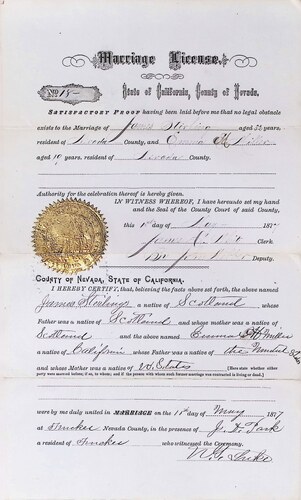 Marriage License.
No. 15
State of California, County of Nevada.
SATISFACTORY PROOF having been laid before me that no legal obstacle
exists to the Marriage of James aged 32 years,
resident of Nevada County, and Emma H. Miller
aged years, resident of Nevada County.
Authority for the celebration thereof is hereby given.
IN WITNESS WHEREOF, I have hereunto set my hand
and the Seal of the County Court of said County,
this day of 187
Clerk
By Deputy.
COUNTY OF NEVADA, STATE OF CALIFORNIA.
I HEREBY CERTIFY, that, believing the facts above set forth, the above named
James a native of Scotland, whose
Father was a native of Scotland and whose mother was a native of
Scotland and the above named Emma H Miller
a native of California whose Father was a native of the United States
and whose Mother was a native of U. States [Here state whether either
party were married before, if so, to whom; and if the person with whom such former marriage was contracted is living or dead.]
were by me duly united in MARRIAGE on the 11th day of May 1877
at Truckee, Nevada County, in the presence of J. H.
a resident of Truckee who witnessed the Ceremony.